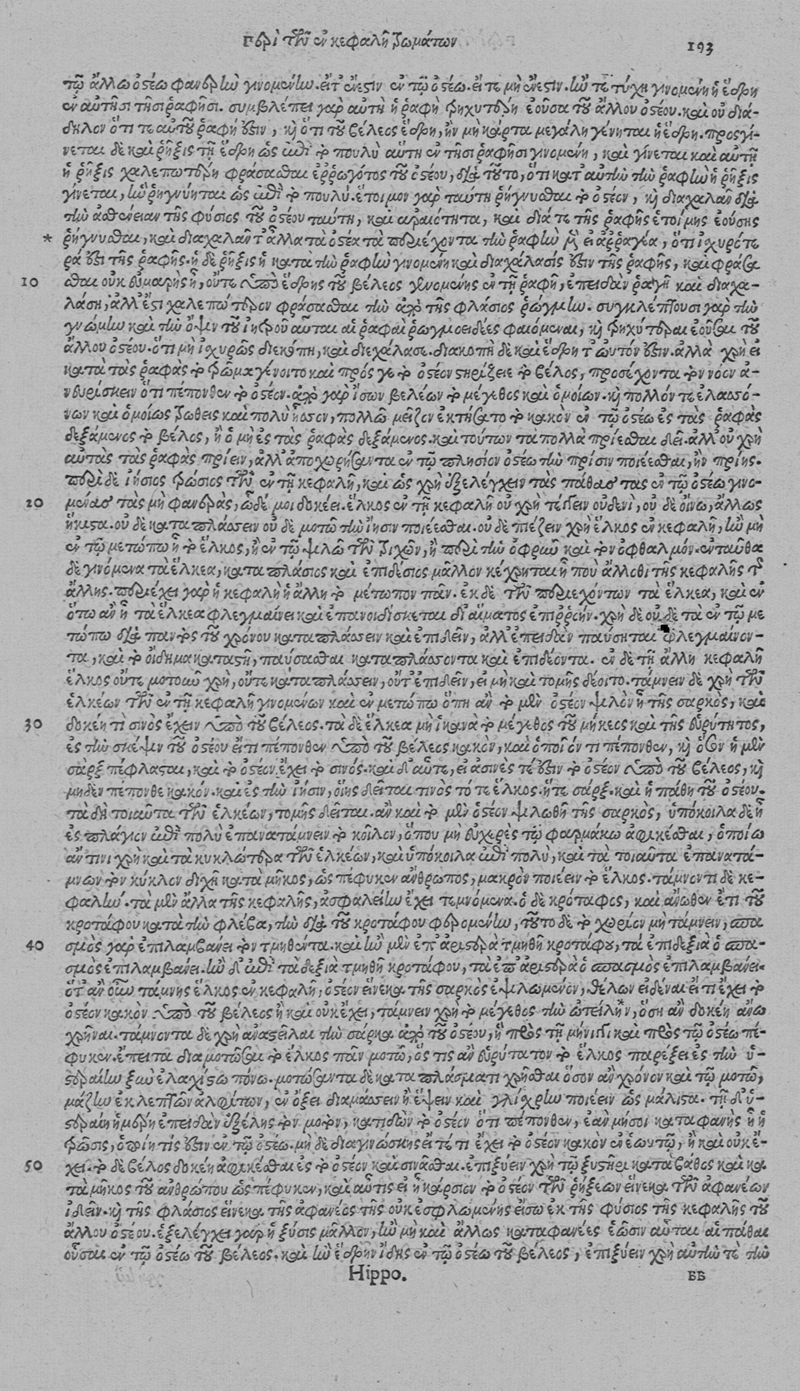 Περὶ τῶν ἐν κεφαλῇ τρωμάτων 193
τῷ ἄλλῳ ὀστέῳ φανερὴν γινομένην. εἴτ' ἔνεστιν ἐν τῷ ὀστέῳ. εἴτε μὴ ἔνεστιν. ἢν τε τύχῃ γινομένη ἡ ἕδρη
ἐν αὐτῇσι τῇσι ῥαφῇσι. συμβλέπει γὰρ αὐτὴ ἡ ῥαφὴ τρηχυτέρη ἐοῦσα τοῦ ἄλλου ὀστέου. καὶ οὐ διά-
δηλον ὅτι τε αὐτοῦ ῥαφή ἐστιν, καὶ ὅτι τοῦ βέλεος ἕδρη, ἢν μὴ κάρτα μεγάλη γένηται ἡ ἕδρη. προσγί-
νεται δὲ καὶ ῥῆξις τῇ ἕδρῃ ὡς ἐπὶ τὸ πουλὺ αὕτη ἐν τῇσι ῥαφῇσι γινομένη, καὶ γίνεται καὶ αὐτὴ
ἡ ῥῆξις χαλεπωτέρη φράσασθαι ἐῤῥωγότος τοῦ ὀστέου, διὰ τοῦτο, ὅτι κατ' αὐτὴν τὴν ῥαφὴν ἡ ῥῆξις
γίνεται, ἢν ῥηγνύηται ὡς ἐπὶ τὸ πουλύ. ἕτοιμον γὰρ ταύτῃ ῥήγνυσθαι τὸ ὀστέον, καὶ διαχαλᾶν διὰ
τὴν ἀσθένειαν τῆς φύσιος τοῦ ὀστέου ταύτῃ, καὶ ἀραιότητα, καὶ διά τε τῆς ῥαφῆς ἑτοίμης ἐούσης
* ῥήγνυσθαι, καὶ διαχαλᾶν τ' ἄλλα τὰ ὀστέα τὰ περιέχοντα τὴν ῥαφὴν μένει ἀῤῥαγέα, ὅτι ἰσχυρότε
ρά ἐστι τῆς ῥαφῆς. ἡ δὲ ῥῆξις ἡ κατὰ τὴν ῥαφὴν γινομένη καὶ διαχάλασίς ἐστιν τῆς ῥαφῆς, καὶ φράσα
10 σθαι οὐκ εὐμαρὴς ᾖ, οὔτε ὑπὸ ἕδρης τοῦ βέλεος γενομένης ἐν τῇ ῥαφῇ, ἐπειδὰν ῥαγῇ καὶ διαχα-
λάσῃ, ἀλλ' ἔτι χαλεπώτερον φράσασθαι τὴν ἀπὸ τῆς φλάσιος ῥωγμήν. συγκλέπτουσι γὰρ τὴν
γνώμην καὶ τὴν ὄψιν τοῦ ἰητροῦ αὗται αἱ ῥαφαὶ ῥωγμοειδέες φαινόμεναι, καὶ τρηχύτεραι ἐοῦσαι τοῦ
ἄλλου ὀστέου. ὅτι μὴ ἰσχυρῶς διεκόπη, καὶ διεχάλασε. διακοπὴ δὲ καὶ ἕδρη τ' ὠυτόν ἐστιν. ἀλλὰ χρὴ εἰ
κατὰ τὰς ῥαφὰς τὸ τρῶμα γένοιτο καὶ πρός γε τὸ ὀστέον στηρίξειε τὸ βέλος, προσέχοντα τὸν νόον ἀ-
νευρίσκειν ὅτι πέπονθεν τὸ ὀστέον. ἀπὸ γὰρ ἴσων βελέων τὸ μέγεθος καὶ ὁμοίων. καὶ πολλόν τε ἐλασσό-
νων καὶ ὁμοίως τρωθεὶς καὶ πολὺ ἧσσον, πολλῷ μεῖζον ἐκτήσατο τὸ κακὸν ἐν τῷ ὀστέῳ ἐς τὰς ῥαφὰς
δεξάμενος τὸ βέλος, ἢ ὁ μὴ ἐς τὰς ῥαφὰς δεξάμενος. καὶ τούτων τὰ πολλὰ πρίεσθαι δεῖ. ἀλλ' οὐ χρὴ
αὐτὰς τὰς ῥαφὰς πρίειν, ἀλλ' ἀποχωρήσαντα ἐν τῷ πλησίον ὀστέῳ τὴν πρίσιν ποιέεσθαι, ἢν πρίῃς.
περὶ δὲ ἰήσιος τρώσιος τῶν ἐν τῇ κεφαλῇ, καὶ ὡς χρὴ ἐξελέγχειν τὰς πάθας τὰς ἐν τῷ ὀστέῳ γινο-
20 μένας τὰς μὴ φανερὰς, ὧδέ μοι δοκέει. ἕλκος ἐν τῇ κεφαλῇ οὐ χρὴ τέγγειν οὐδενὶ, οὐ δὲ οἴνῳ, ἄλλως
ἥκιστα. οὐ δὲ καταπλάσσειν οὐ δὲ μοτῷ τὴν ἴησιν ποιέεσθαι. οὐ δὲ πιέζειν χρὴ ἕλκος ἐν κεφαλῇ, ἢν μὴ
ἐν τῷ μετώπῳ ᾖ τὸ ἕλκος, ἢ ἐν τῷ ψιλῷ τῶν τριχῶν, ἢ περὶ τὴν ὀφρὺν καὶ τὸν ὀφθαλμόν. ἐνταῦθα
δὲ γινόμενα τὰ ἕλκεα, καταπλάσιος καὶ ἐπιδέσιος μᾶλλον κέχρηται ἤ που ἄλλοθι τῆς κεφαλῆς τῆς
ἄλλης. περιέχει γὰρ ἡ κεφαλὴ ἡ ἄλλη τὸ μέτωπον πᾶν. ἐκ δὲ τῶν περιεχόντων τὰ ἕλκεα, καὶ ἐν
ὅτῳ ἂν ᾖ τὰ ἕλκεα φλεγμαίνει καὶ ἐπανοιδίσκεται δι' αἵματος ἐπιῤῥοήν. χρὴ δὲ οὐ δὲ τὰ ἐν τῷ με
τώπῳ διὰ παντὸς τοῦ χρόνου καταπλάσσειν καὶ ἐπιδεῖν, ἀλλ' ἐπειδὰν παύσηται φλεγμαίνον-
τα, καὶ τὸ οἴδημα καταστῇ, παύσασθαι καταπλάσσοντα καὶ ἐπιδέοντα. ἐν δὲ τῇ ἄλλῃ κεφαλῇ
ἕλκος οὔτε μοτοῦν χρὴ, οὔτε καταπλάσσειν, οὔτ' ἐπιδεῖν, εἰ μὴ καὶ τομῆς δέοιτο. τάμνειν δὲ χρὴ τῶν
ἑλκέων τῶν ἐν τῇ κεφαλῇ γινομένων καὶ ἐν μετώπῳ ὅπη ἂν τὸ μὲν ὀστέον ψιλὸν ᾖ τῆς σαρκὸς, καὶ
30 δοκέῃ τι σίνος ἔχειν ὑπὸ τοῦ βέλεος. τὰ δὲ ἕλκεα μὴ ἱκανὰ τὸ μέγεθος τοῦ μήκεος καὶ τῆς εὐρύτητος,
ἐς τὴν σκέψιν τοῦ ὀστέου εἴ τι πέπονθεν ὑπὸ τοῦ βέλεος κακὸν, καὶ ὁποῖόν τι πέπονθεν, καὶ ὅσον ἡ μὲν
σὰρξ πέφλασται, καὶ τὸ ὀστέον ἔχει τὸ σίνος. καὶ δ' αὖτε, εἰ ἀσινές τέ ἐστιν τὸ ὀστέον ὑπὸ τοῦ βέλεος, καὶ
μηδὲν πέπονθε κακόν. καὶ ἐς τὴν ἴησιν, οἵης δεῖται τινὸς τό τε ἕλκος. ἥ τε σάρξ. καὶ ἡ πάθη τοῦ ὀστέου.
τὰ δὴ τοιαῦτα τῶν ἑλκέων, τομῆς δεῖται. ἂν καὶ τὸ μὲν ὀστέον ψιλωθῇ τῆς σαρκὸς, ὑπόκοιλα δὲ ᾖ
ἐς πλάγιον ἐπὶ πολὺ ἐπανατάμνειν τὸ κοῖλον, ὅπου μὴ εὐχερὲς τῷ φαρμάκῳ ἀφικέσθαι, ὁποίῳ
ἄν τινι χρῇ καὶ τὰ κυκλώτερα τῶν ἑλκέων, καὶ ὑπόκοιλα ἐπὶ πολὺ, καὶ τὰ τοιαῦτα ἐπανατά-
μνων τὸν κύκλον διχῇ κατὰ μῆκος, ὡς πέφυκεν ἄνθρωπος, μακρὸν ποιέειν τὸ ἕλκος. τάμνοντι δὲ κε-
φαλὴν. τὰ μὲν ἄλλα τῆς κεφαλῆς, ἀσφαλείην ἔχει τεμνόμενα. ὁ δὲ κρόταφος, καὶ ἄνωθεν ἔτι τοῦ
κροτάφου κατὰ τὴν φλέβα, τὴν διὰ τοῦ κροτάφου φερομένην, τοῦτο δὲ τὸ χωρίον μὴ τάμνειν, σπα
40 σμὸς γὰρ ἐπιλαμβάνει τὸν τμηθέντα. καὶ ἢν μὲν ἐπ' ἀριστερὰ τμηθῇ κροτάφου, τὰ ἐπιδεξιὰ ὁ σπα-
σμὸς ἐπιλαμβάνει. ἢν δ' ἐπὶ τὰ δεξιὰ τμηθῇ κροτάφου, τὰ ἐπ' ἀριστερὰ ὁ σπασμὸς ἐπιλαμβάνει.
ὅτ' ἂν οὖν τάμνῃς ἕλκος ἐν κεφαλῇ, ὀστέον εἵνεκα τῆς σαρκὸς ἐψιλωμένον, θέλων εἰδέναι εἴ τι ἔχει τὸ
ὀστέον κακὸν ὑπὸ τοῦ βέλεος ἢ καὶ οὐκ ἔχει, τάμνειν χρὴ τὸ μέγεθος τὴν ὠτειλὴν, ὅση ἂν δοκέῃ ἄνω
χρῆναι. τάμνοντα δὲ χρὴ ἀναστεῖλαι τὴν σάρκα ἀπὸ τοῦ ὀστέου, ᾗ πρὸς τῇ μήνιγγι καὶ πρὸς τῷ ὀστέῳ πέ-
φυκεν. ἔπειτα διαμοτῶσαι τὸ ἕλκος πᾶν μοτῷ, ὅς τις ἂν εὐρύτατον τὸ ἕλκος παρέξει ἐς τὴν ὑ-
στεραίην ξὺν ἐλαχίστῳ πόνῳ. μοτώσαντα δὲ καταπλάσματι χρῆσθαι ὅσον ἂν χρόνον καὶ τῷ μοτῷ,
μάζην ἐκ λεπτῶν ἀλφίτων, ἐν ὄξει διαμάσσειν ἢ ἕψειν καὶ γλίσχρην ποιέειν ὡς μάλιστα. τῇ δ' ὑ-
στεραίῃ ἡμέρῃ ἐπειδὰν ἐξέλῃς τὸν μοτὸν, κατιδὼν τὸ ὀστέον ὅτι πέπονθεν, ἐὰν μή σοι καταφανὴς ᾖ ἡ
τρῶσις, ὁποίη τίς ἐστιν ἐν τῷ ὀστέῳ. μὴ δὲ διαγινώσκῃς εἴ τέ τι ἔχει τὸ ὀστέον κακὸν ἐν ἑωυτῷ, ἢ καὶ οὐκ ἔ-
50 χει. τὸ δὲ βέλος δοκέῃ ἀφικέσθαι ἐς τὸ ὀστέον καὶ σίνασθαι. ἐπιξύειν χρὴ τῷ ξυστῆρι κατὰ βάθος καὶ κα
τὰ μῆκος τοῦ ἀνθρώπου ὡς πέφυκεν, καὶ αὖτις εἰ ᾖ κάρσιον τὸ ὀστέον τῶν ῥηξίων εἵνεκα τῶν ἀφανέων
ἰδεῖν. καὶ τῆς φλάσιος εἵνεκα τῆς ἀφανέος τῆς οὐκ ἐσφλωμένης εἴσω ἐκ τῆς φύσιος τῆς κεφαλῆς τοῦ
ἄλλου ὀστέου. ἐξελέγχει γὰρ ἡ ξύσις μᾶλλον, ἢν μὴ καὶ ἄλλως καταφανέες ἔωσιν αὗται αἱ πάθαι
οὖσαι ἐν τῷ ὀστέῳ τοῦ βέλεος. καὶ ἢν ἕδρην ἴδῃς ἐν τῷ ὀστέῳ τοῦ βέλεος, ἐπιξύειν χρὴ αὐτήν τε τὴν
Hippo. BB